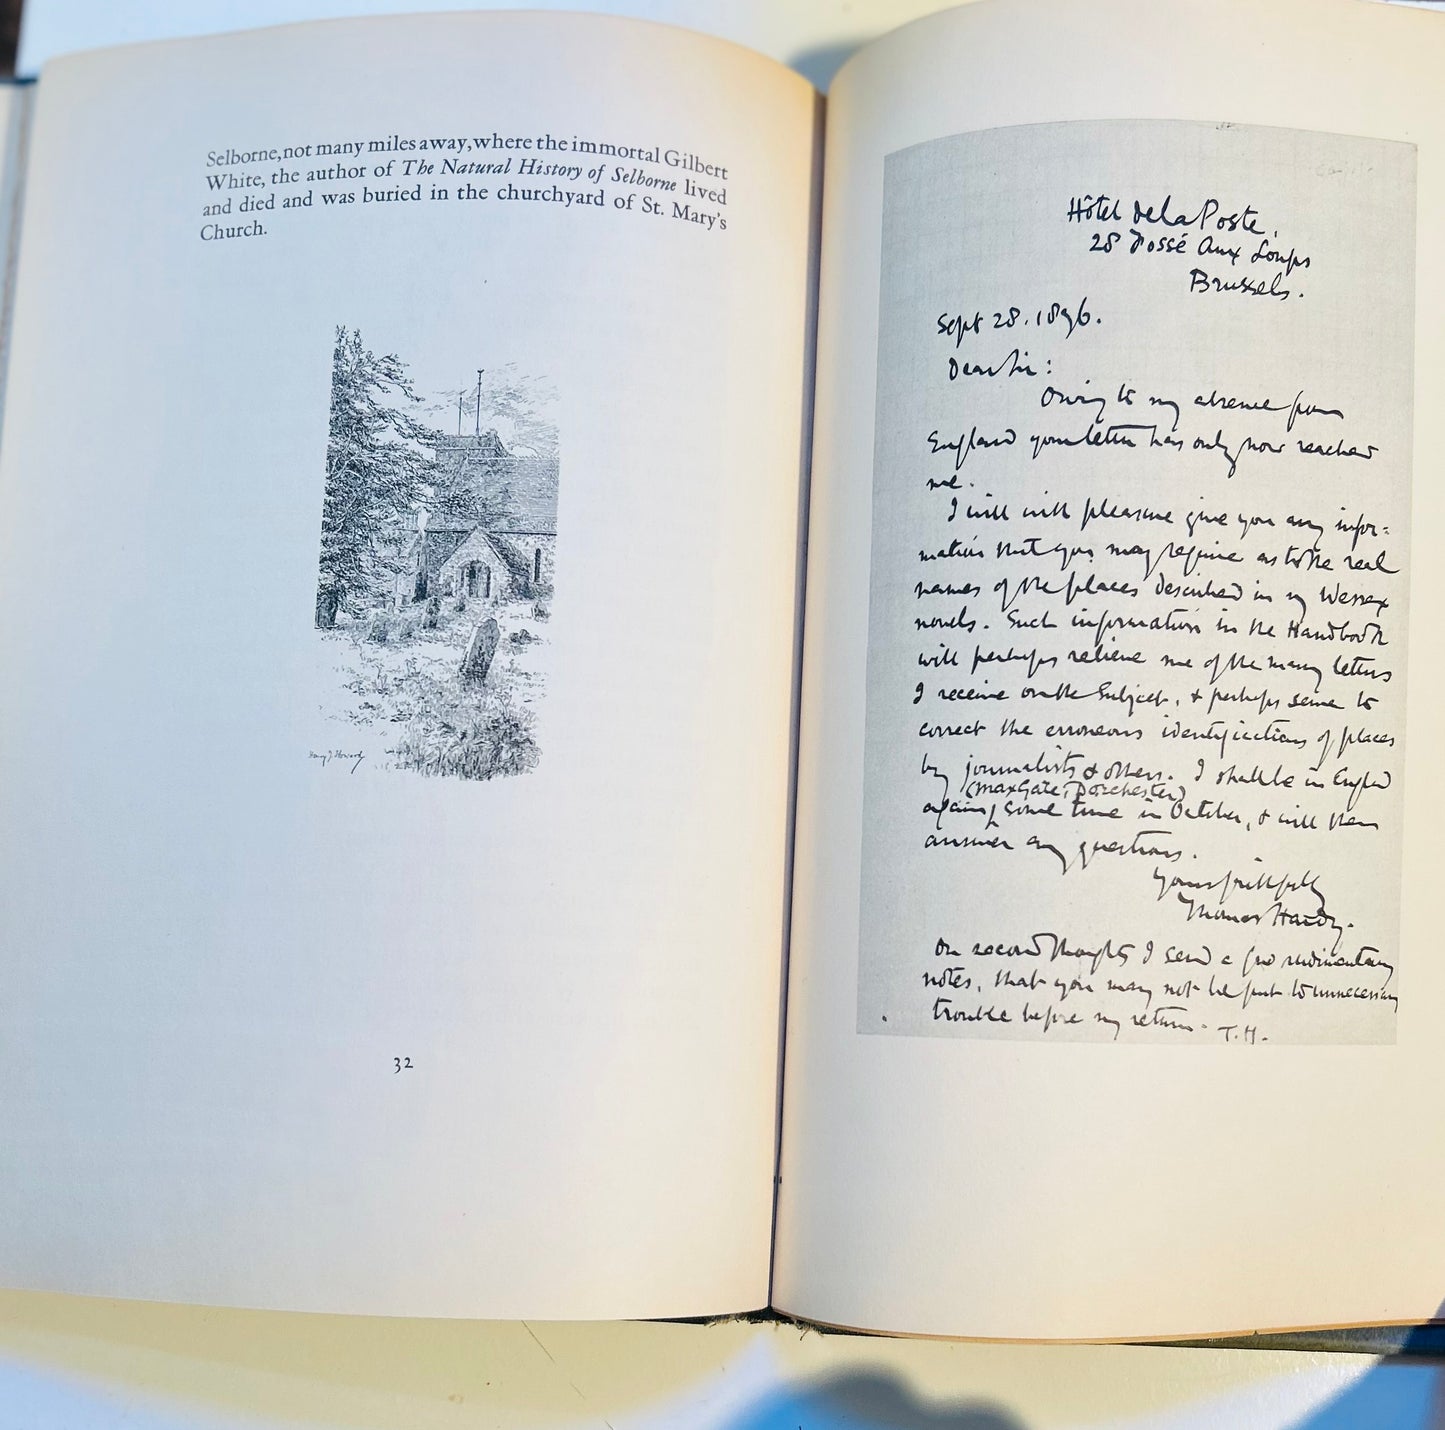 Selborne, not many miles away, where the immortal Gilbert
White, the author of The Natural History of Selborne lived
and died and was buried in the churchyard of St. Mary's
Church.
32
Hôtel de la Poste,
28 Fossé Aux Loups
Brussels.
Sept 28. 1896.
Dear Sir:
Owing to my absence from
England your letter has only now reached
me.
I will with pleasure give you any infor=
mation that you may require as to the real
names of the places described in my Wessex
novels. Such information in the Handbook
will perhaps relieve me of the many letters
I receive on the subject, & perhaps serve to
correct the erroneous identifications of places
by journalists & others. I shall be in England
(Max Gate, Dorchester)
again some time in October, & will then
answer any questions.
Yours faithfully
Thomas Hardy.
On second thoughts I send a few rudimentary
notes, that you may not be put to unnecessary
trouble before my return. T.H.